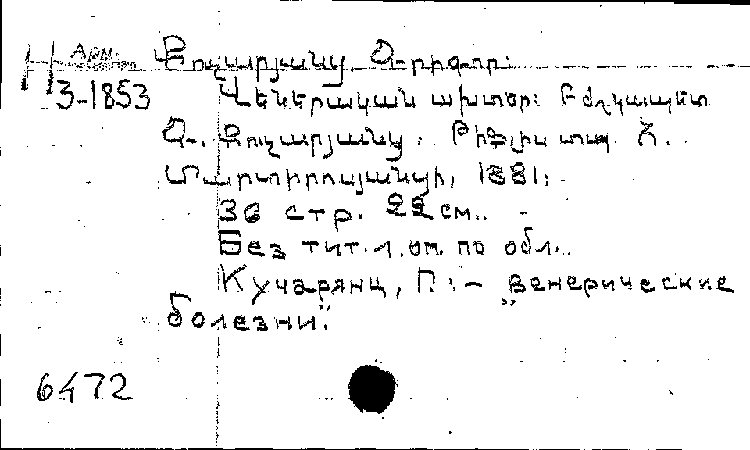 Арм. Քուչարյանց Գրիգոր։
3-1853 Վեներական ախտեր։ Բժշկապետ
Գ. Քուչարյանց. Թիֆլիս տպ.
Մարտիրոսյանցի, 1881։
36 стр. 22 см..
Без тит. л. оп. по обл..
Кучарянц, Г. :- „Венерические
болезни“.
6472